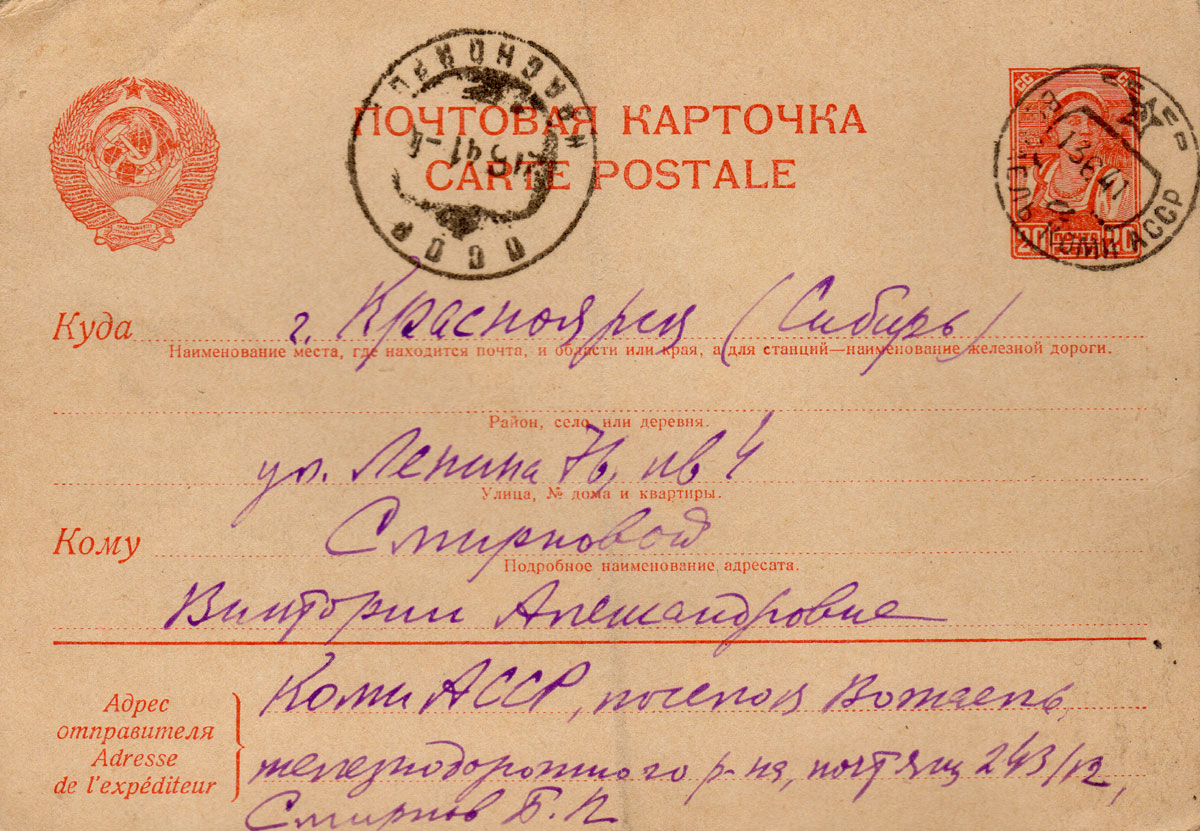 КРАСНОЯРСК
СССР
ПОЧТОВАЯ КАРТОЧКА
CARTE POSTALE
20 ПОЧТА 20
КОМИ АССР
Куда г. Красноярск (Сибирь)
Наименование места, где находится почта, и области или края, а для станций—наименование железной дороги.
Район, село или деревня.
ул. Ленина 76, кв 4
Улица, № дома и квартиры.
Кому Смирновой
Подробное наименование адресата.
Виктории Александровне
Адрес
отправителя
Adresse
de l'expéditeur
Коми АССР, поселок Вожаель,
железнодорожного р-на, почт ящ 243/12,
Смирнов Б. П